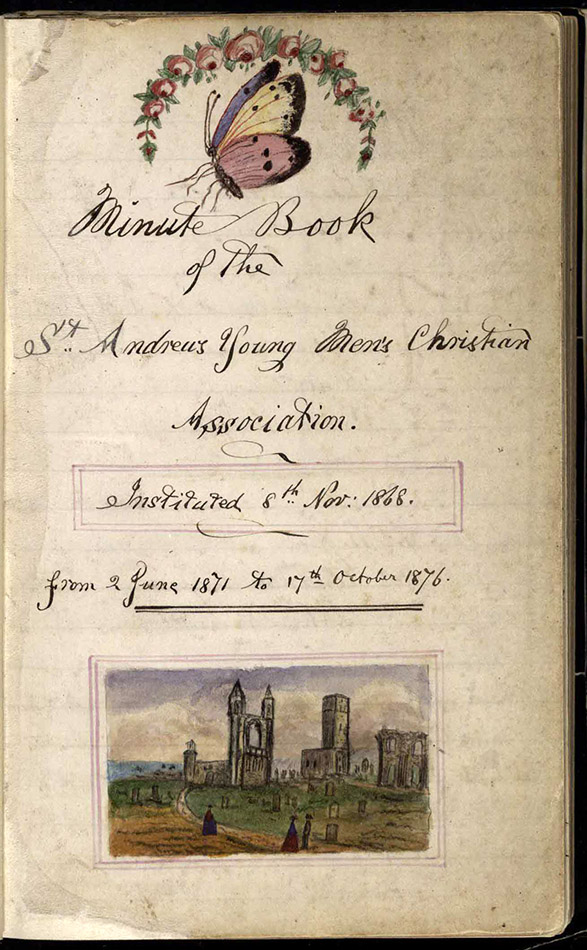 Minute Book
of the
St. Andrews Young Men's Christian
Association.
Instituted 8th Nov: 1868.
from 2 June 1871 to 17th October 1876.